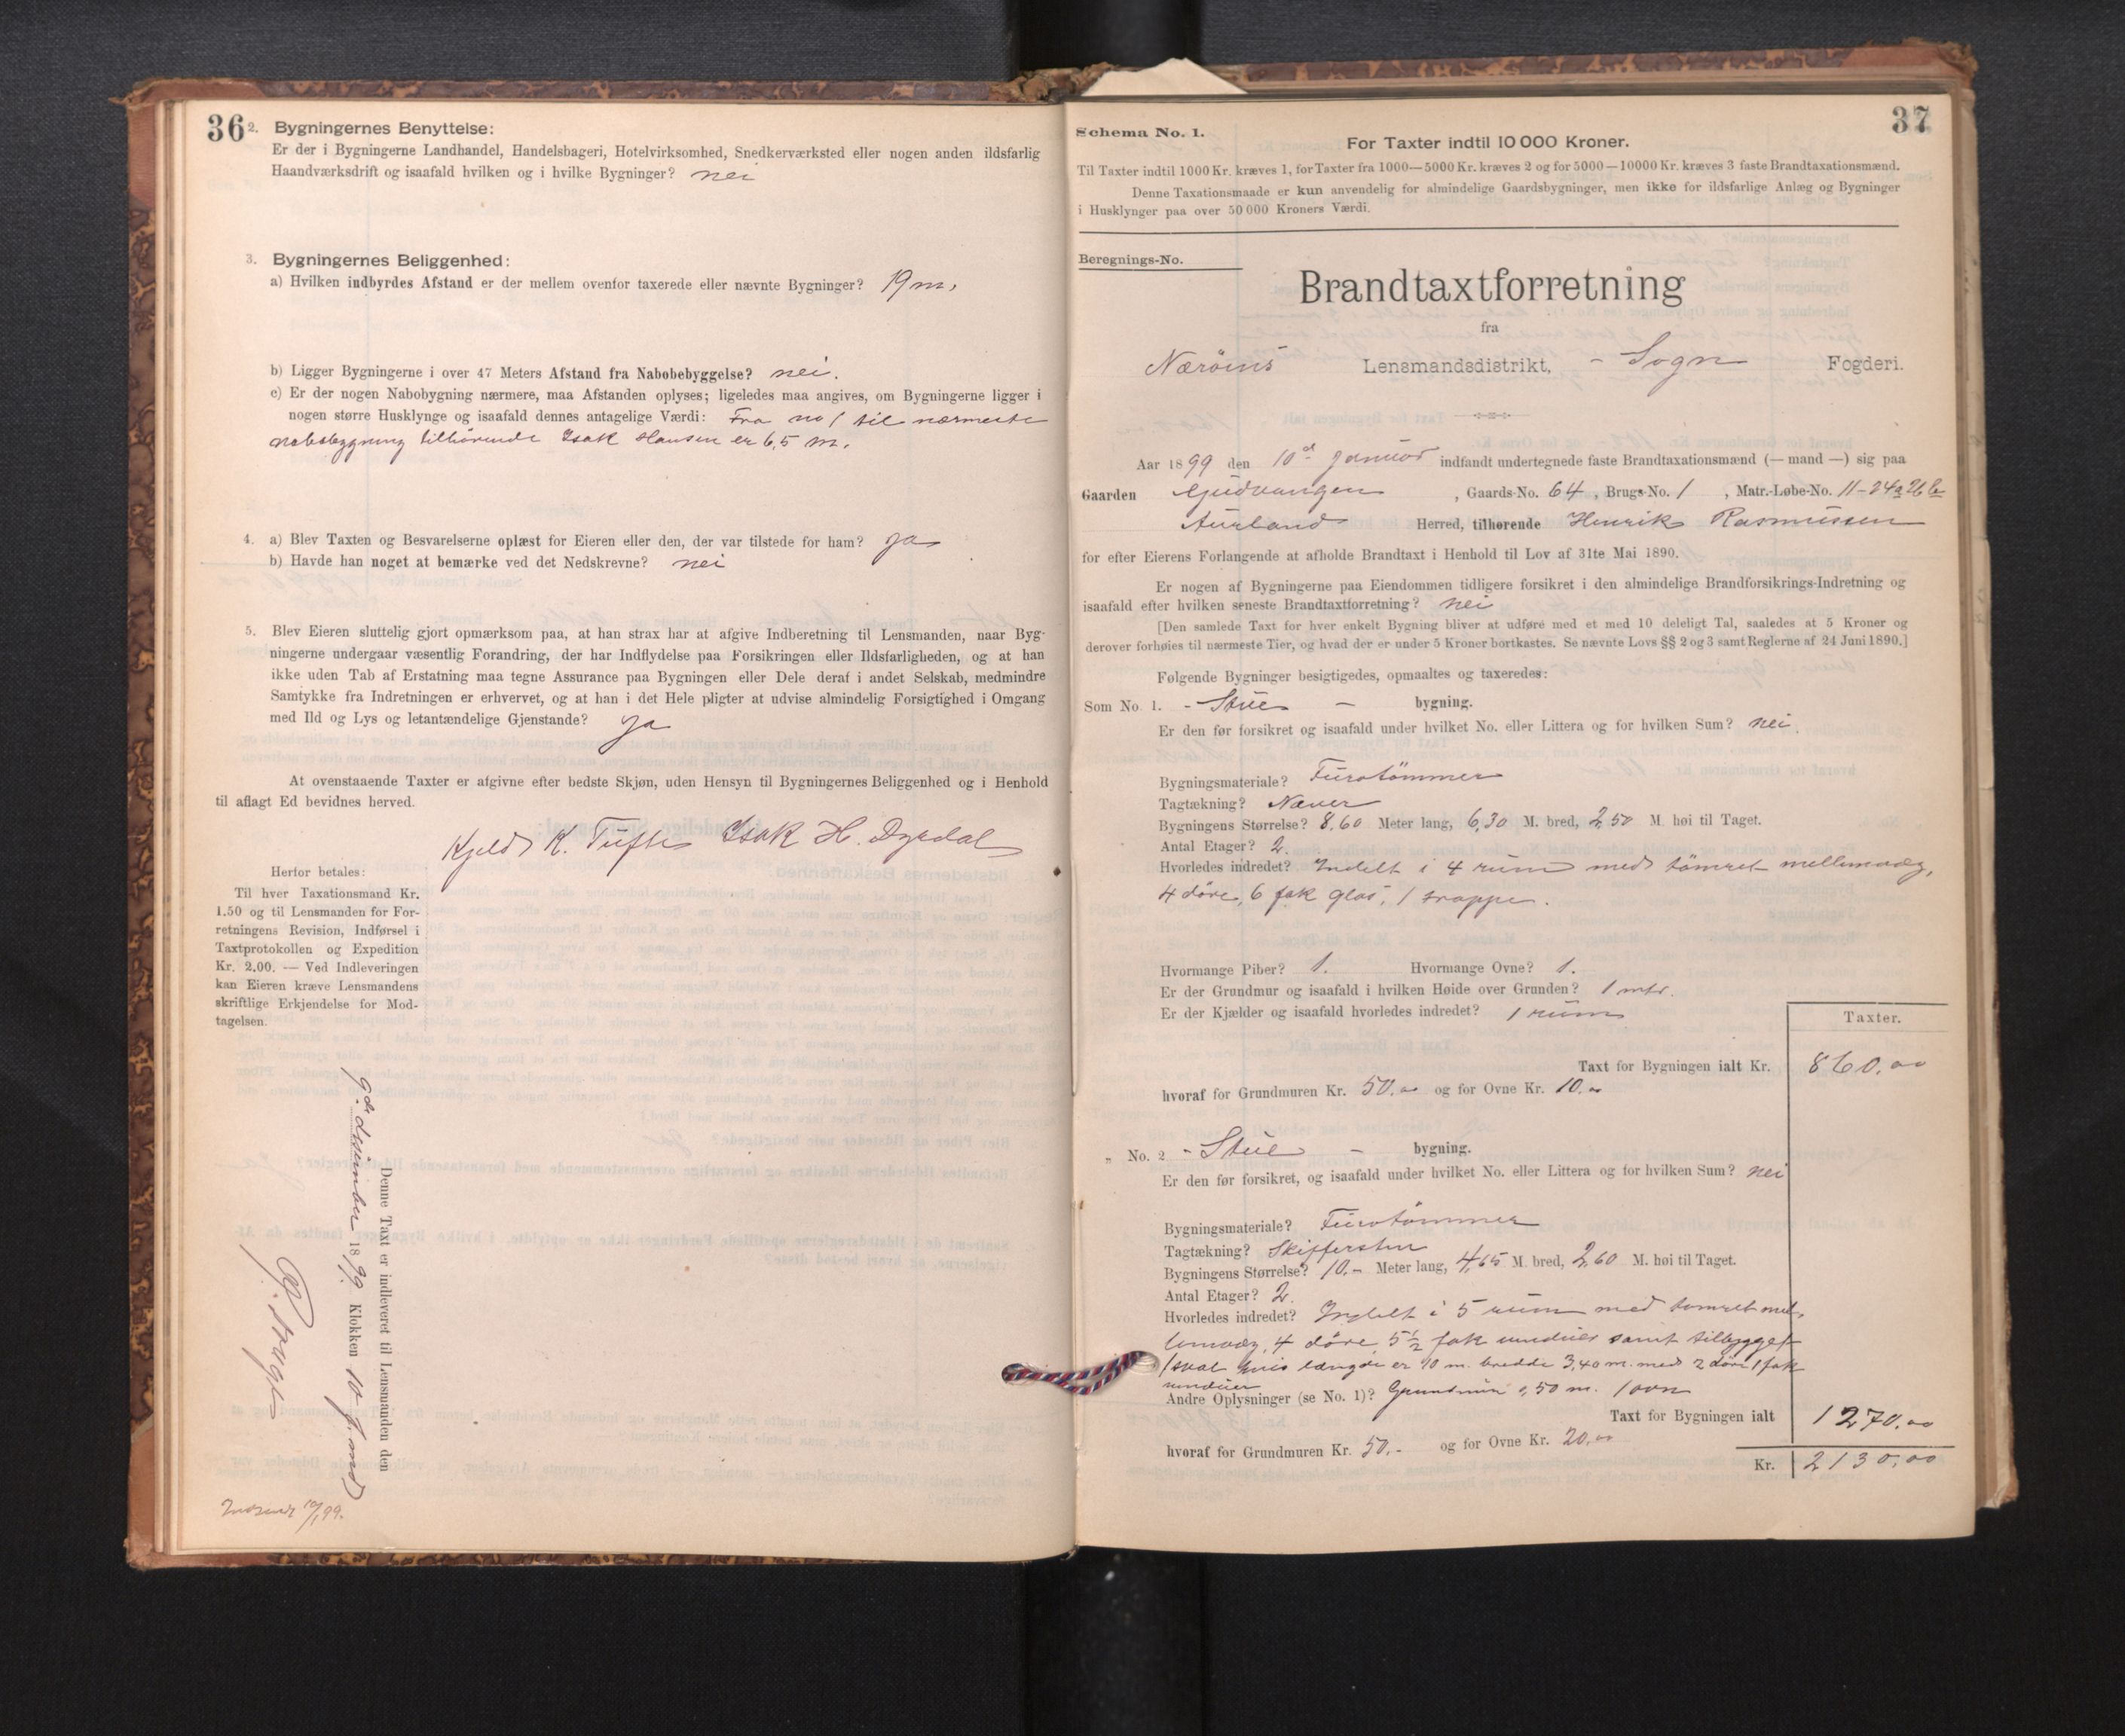 36
2. Bygningernes Benyttelse:
Er der i Bygningerne Landhandel, Handelsbageri, Hotelvirksomhed, Snedkerværksted eller nogen anden ildsfarlig
Haandværksdrift og isaafald hvilken og i hvilke Bygninger? nei
3. Bygningernes Beliggenhed:
a) Hvilken indbyrdes Afstand er der mellem ovenfor taxerede eller nævnte Bygninger? 19 m.
b) Ligger Bygningerne i over 47 Meters Afstand fra Nabobebyggelse? nei.
c) Er der nogen Nabobygning nærmere, maa Afstanden oplyses; ligeledes maa angives, om Bygningerne ligger i
nogen større Husklynge og isaafald dennes antagelige Værdi: Fra no 1 til nærmeste
nabobygning tilhörende Isak Hansen er 6,5 m.
4. a) Blev Taxten og Besvarelserne oplæst for Eieren eller den, der var tilstede for ham? ja
b) Havde han noget at bemærke ved det Nedskrevne? nei
5. Blev Eieren sluttelig gjort opmærksom paa, at han strax har at afgive Indberetning til Lensmanden, naar Byg-
ningerne undergaar væsentlig Forandring, der har Indflydelse paa Forsikringen eller Ildsfarligheden, og at han
ikke uden Tab af Erstatning maa tegne Assurance paa Bygningen eller Dele deraf i andet Selskab, medmindre
Samtykke fra Indretningen er erhvervet, og at han i det Hele pligter at udvise almindelig Forsigtighed i Omgang
med Ild og Lys og letantændelige Gjenstande? ja
At ovenstaaende Taxter er afgivne efter bedste Skjøn, uden Hensyn til Bygningernes Beliggenhed og i Henhold
til aflagt Ed bevidnes herved.
Kjeld K. Tufte Isak H. Dyrdal
Herfor betales:
Til hver Taxationsmand Kr.
1.50 og til Lensmanden for For-
retningens Revision, Indførsel i
Taxtprotokollen og Expedition
Kr. 2.00. — Ved Indleveringen
kan Eieren kræve Lensmandens
skriftlige Erkjendelse for Mod-
tagelsen.
Denne Taxt er indleveret til Lensmanden den
9de desember 1899. Klokken 10 f. md
Indsendt 10/1 99.
37
Schema No. 1.
For Taxter indtil 10 000 Kroner.
Til Taxter indtil 1000 Kr. kræves 1, for Taxter fra 1000—5000 Kr. kræves 2 og for 5000—10000 Kr. kræves 3 faste Brandtaxationsmænd.
Denne Taxationsmaade er kun anvendelig for almindelige Gaardsbygninger, men ikke for ildsfarlige Anlæg og Bygninger
i Husklynger paa over 50 000 Kroners Værdi.
Beregnings-No.
Brandtaxtforretning
fra
Næröens Lensmandsdistrikt, - Sogn Fogderi.
Aar 1899 den 10de januar indfandt undertegnede faste Brandtaxationsmænd (— mand —) sig paa
Gaarden Gudvangen , Gaards-No. 64 , Brugs-No. 1 , Matr.-Løbe-No. 11-24a 26b
Aurland Herred, tilhørende Henrik Rasmussen
for efter Eierens Forlangende at afholde Brandtaxt i Henhold til Lov af 31te Mai 1890.
Er nogen af Bygningerne paa Eiendommen tidligere forsikret i den almindelige Brandforsikrings-Indretning og
isaafald efter hvilken seneste Brandtaxtforretning? nei
[Den samlede Taxt for hver enkelt Bygning bliver at udføre med et med 10 deleligt Tal, saaledes at 5 Kroner og
derover forhøies til nærmeste Tier, og hvad der er under 5 Kroner bortkastes. Se nævnte Lovs §§ 2 og 3 samt Reglerne af 24 Juni 1890.]
Følgende Bygninger besigtigedes, opmaaltes og taxeredes:
Som No 1. - Stue - bygning.
Er den før forsikret og isaafald under hvilket No. eller Littera og for hvilken Sum? nei.
Bygningsmateriale? Furutömmer
Tagtækning? Næver
Bygningens Størrelse? 8,60 Meter lang, 6,30 M. bred, 2,50 M. høi til Taget.
Antal Etager? 2.
Hvorledes indredet? Indelt i 4 rum med tömret mellemvæg,
4 döre, 6 fak glas, 1 trappe.
Hvormange Piber? 1. Hvormange Ovne? 1.
Er der Grundmur og isaafald i hvilken Høide over Grunden? 1 mtr.
Er der Kjælder og isaafald hvorledes indredet? 1 rum
Taxter.
Taxt for Bygningen ialt Kr. 860.00
hvoraf for Grundmuren Kr. 50.00 og for Ovne Kr. 10.00
„ No. 2 - Stue - bygning.
Er den før forsikret, og isaafald under hvilket No. eller Littera og for hvilken Sum? nei
Bygningsmateriale? Furutömmer
Tagtækning? Skiffersten
Bygningens Størrelse? 10.- Meter lang, 4,65 M. bred, 2,60 M. høi til Taget.
Antal Etager? 2.
Hvorledes indredet? Indelt i 5 rum med tömret mel-
lemvæg, 4 döre, 5 1/2 fak vinduer samt tilbygget
1 sval hvis længde er 10 m. bredde 3,40 m. med 2 döre 1 fak
vinduer
Andre Oplysninger (se No. 1)? Grundmur 0,50 m. 1 ovn
Taxt for Bygningen ialt 1270.00
hvoraf for Grundmuren Kr. 50.- og for Ovne Kr. 20.00
Kr. 2130.00